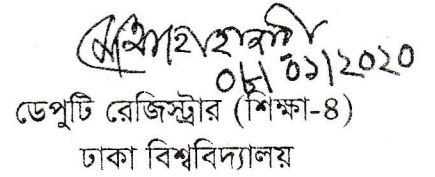 ০৮/০১/2020
ডেপুটি রেজিস্ট্রার (শিক্ষা-৪)
ঢাকা বিশ্ববিদ্যালয়